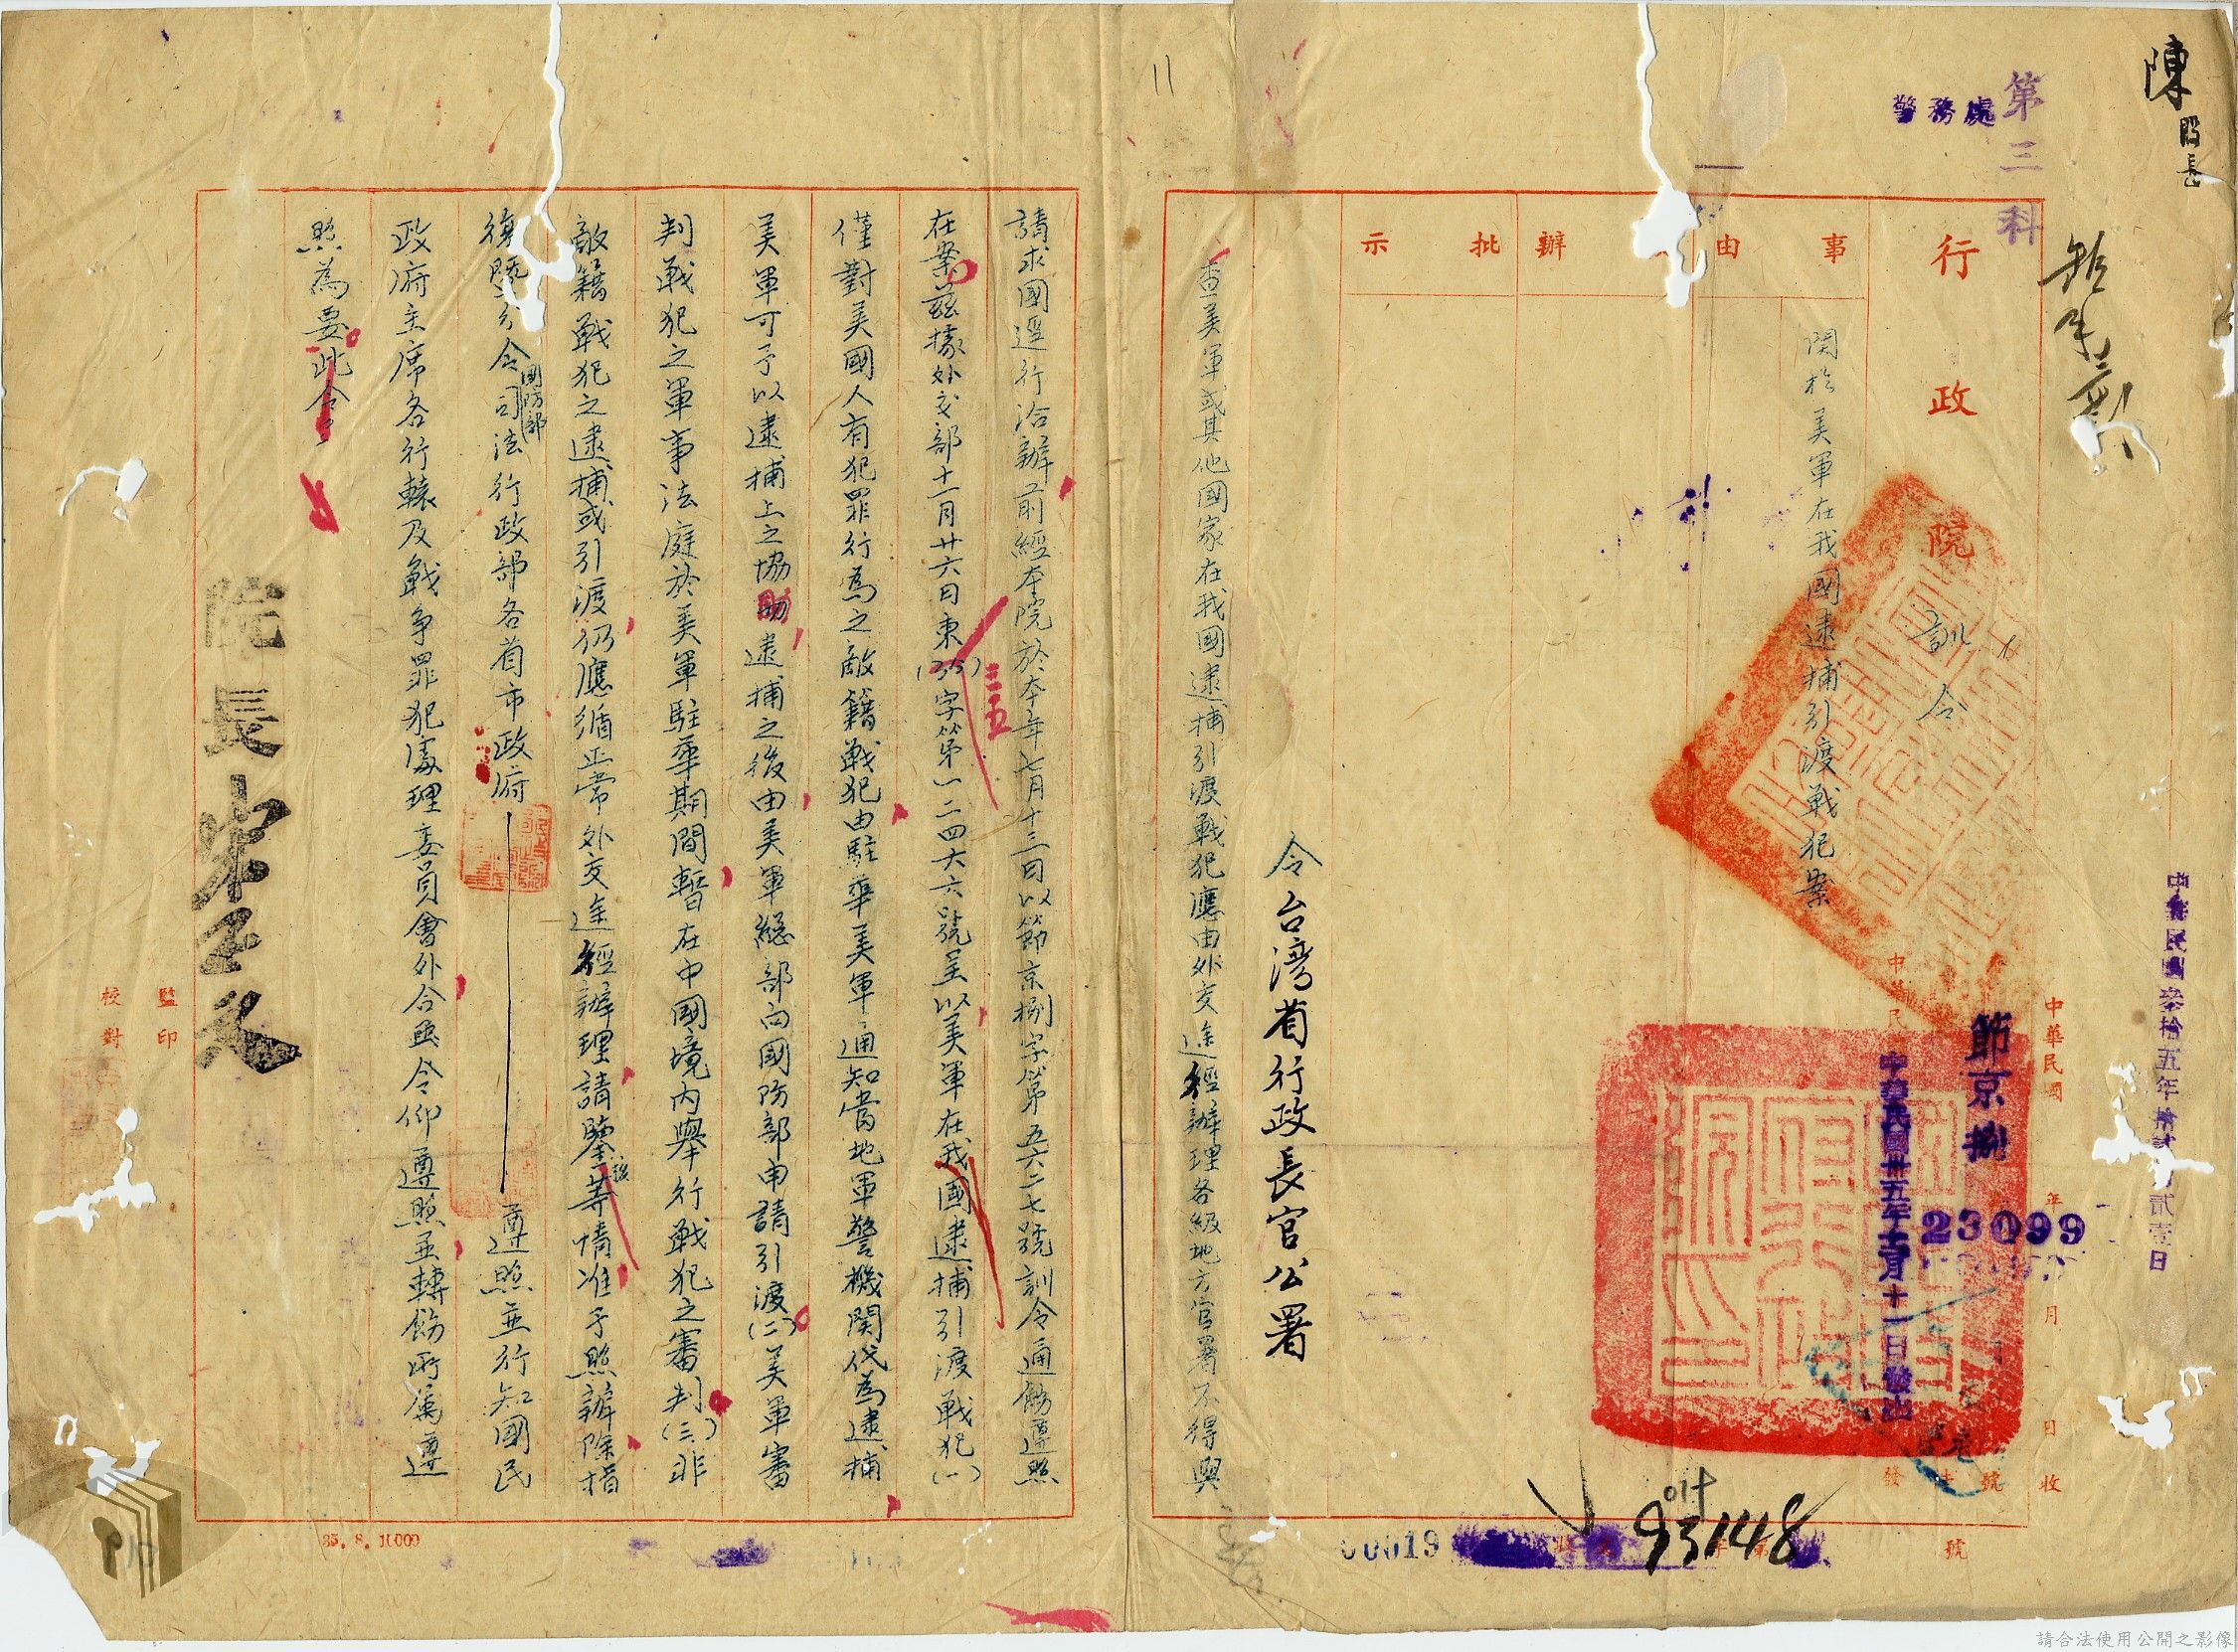 陳股長
第三科
警務處
中華民國叁拾五年拾貳月貳壹日
中華民國 年 月 日收
行政院訓令
節京捌
23099
中華民國卅五年十二月十一日發出
事由
關於美軍在我國逮捕引渡戰犯案
辦
批示
令台灣省行政長官公署
查美軍或其他國家在我國逮捕引渡戰犯應由外交途經辦理各級地方官署不得與
請求國逕行洽辦前經本院於本年七月十三日以節京捌字第五六二七號訓令通飭遵照
在案茲據外交部十一月廿六日東(35)字第一二四六六號呈以美軍在我國逮捕引渡戰犯(一)
三五
僅對美國人有犯罪行為之敵籍戰犯由駐華美軍通知當地軍警機関代為逮捕
美軍可予以逮捕上之協助逮捕之後由美軍總部向國防部申請引渡(二)美軍審
判戰犯之軍事法庭於美軍駐華期間暫在中國境內舉行戰犯之審判(三)非
敵籍戰犯之逮捕或引渡仍應循正常外交途經辦理請鑒核等情准予照辦除指
復暨分令國防部司法行政部各省市政府遵照並行知國民
政府主席各行轅及戰争罪犯處理委員會外合亟令仰遵照並轉飭所屬遵
照為要此令
院長宋子文
監印
校對
35. 8. 10000
00019
93148
號
11
請合法使用公開之影像